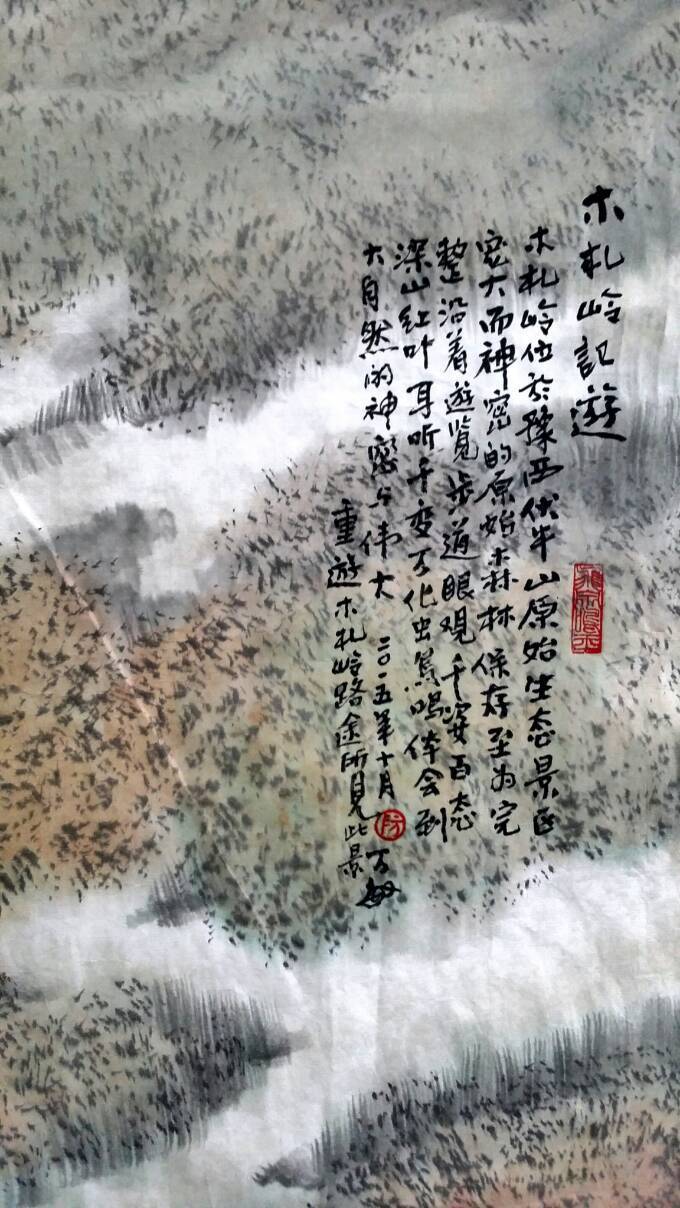 木札岭記遊
木札岭位於豫西伏牛山原始生态景区
宽大而神密的原始森林保存至为完
整沿着遊览步道眼观千姿百态
深山红叶耳听千变万化虫鸟鸣体会到
大自然的神密与伟大 二〇一五年十月 万敏
重遊木札岭路途所見此景